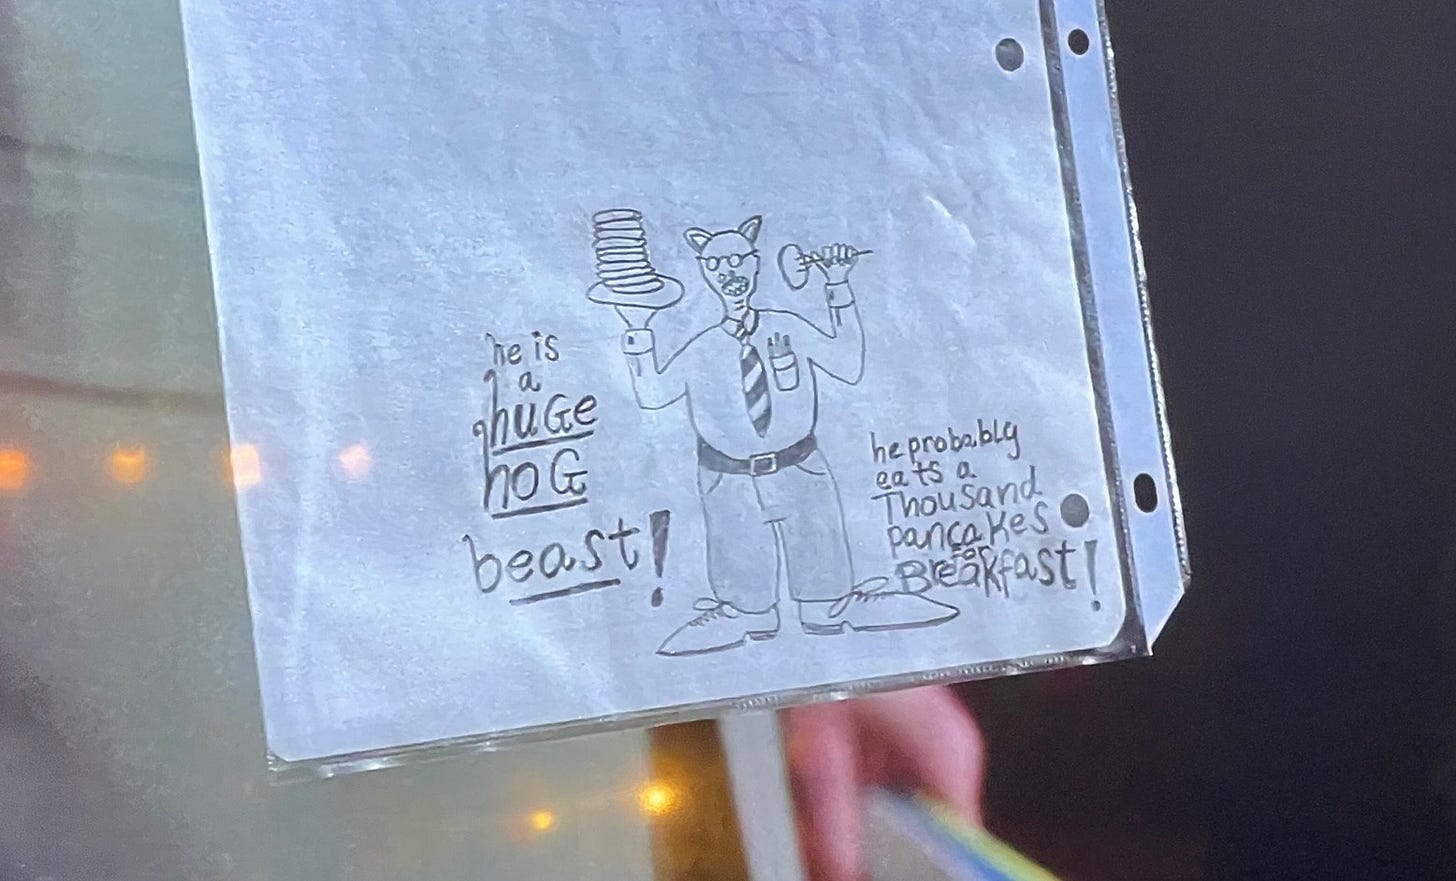 he is
a
huGe
hoG
beast!
he probably
eats a
Thousand
pancakes
For
Breakfast!